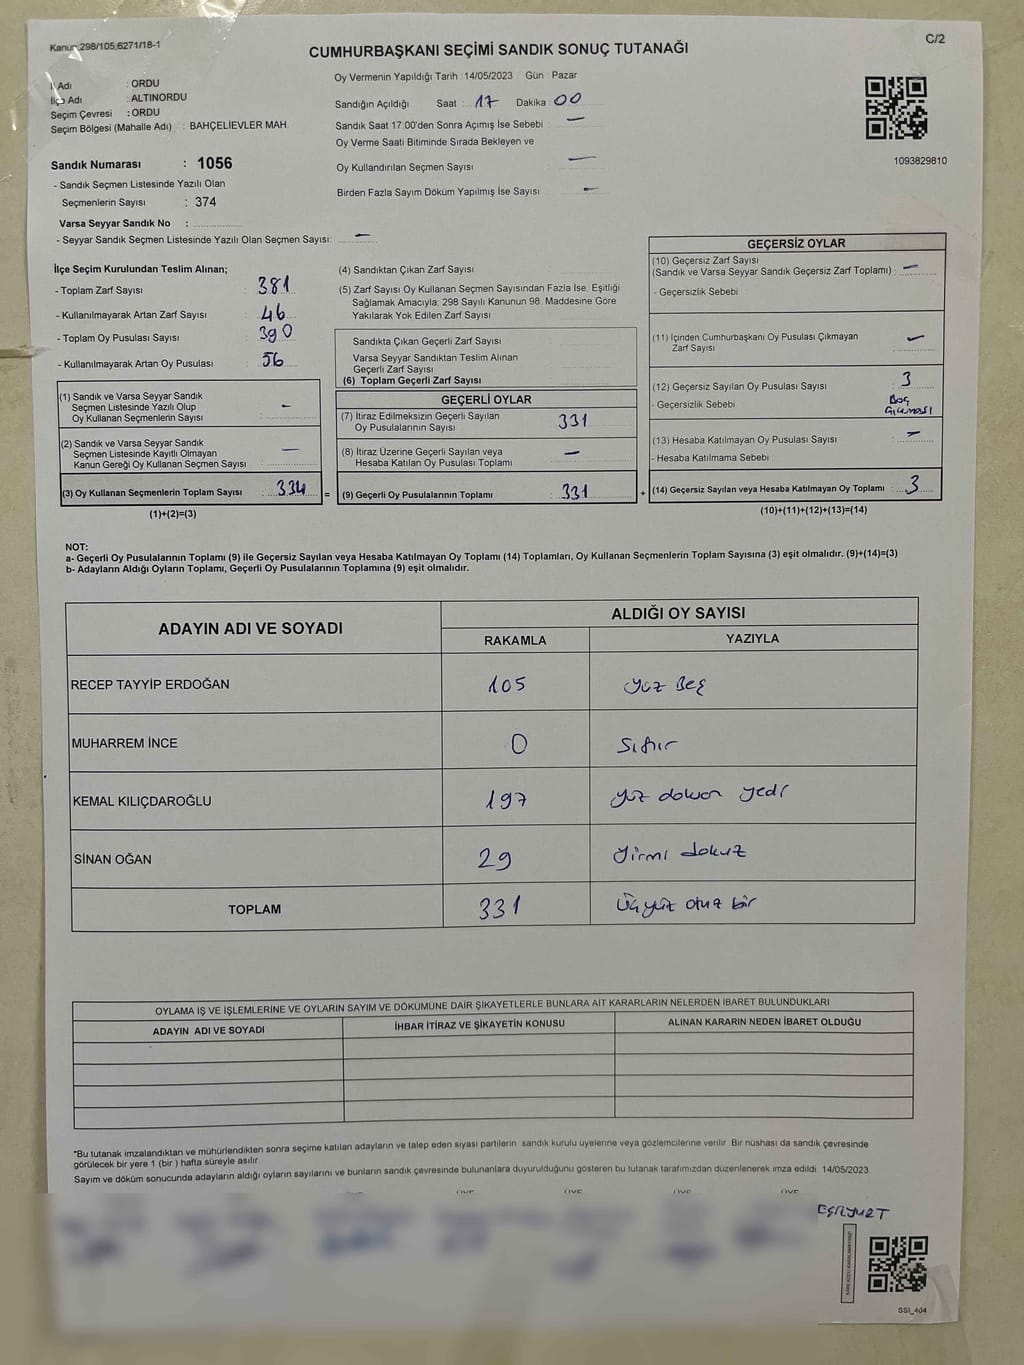 Kanun;298/105;6271/18-1
C/2
CUMHURBAŞKANI SEÇİMİ SANDIK SONUÇ TUTANAĞI
İl Adı : ORDU
İlçe Adı : ALTINORDU
Seçim Çevresi : ORDU
Seçim Bölgesi (Mahalle Adı) : BAHÇELİEVLER MAH.
Oy Vermenin Yapıldığı Tarih :14/05/2023 Gün : Pazar
Sandığın Açıldığı Saat : 17 Dakika : 00
Sandık Saat 17:00'den Sonra Açımış İse Sebebi : —
Oy Verme Saati Bitiminde Sırada Bekleyen ve
Oy Kullandırılan Seçmen Sayısı : —
Birden Fazla Sayım Döküm Yapılmış İse Sayısı : —
1093829810
Sandık Numarası : 1056
- Sandık Seçmen Listesinde Yazılı Olan
Seçmenlerin Sayısı : 374
Varsa Seyyar Sandık No :
- Seyyar Sandık Seçmen Listesinde Yazılı Olan Seçmen Sayısı: —
İlçe Seçim Kurulundan Teslim Alınan;
- Toplam Zarf Sayısı : 381
- Kullanılmayarak Artan Zarf Sayısı : 46
- Toplam Oy Pusulası Sayısı : 390
- Kullanılmayarak Artan Oy Pusulası : 56
(1) Sandık ve Varsa Seyyar Sandık
Seçmen Listesinde Yazılı Olup
Oy Kullanan Seçmenlerin Sayısı : —
(2) Sandık ve Varsa Seyyar Sandık
Seçmen Listesinde Kayıtlı Olmayan
Kanun Gereği Oy Kullanan Seçmen Sayısı : —
(3) Oy Kullanan Seçmenlerin Toplam Sayısı : 334 =
(1)+(2)=(3)
(4) Sandıktan Çıkan Zarf Sayısı :
(5) Zarf Sayısı Oy Kullanan Seçmen Sayısından Fazla İse, Eşitliği
Sağlamak Amacıyla; 298 Sayılı Kanunun 98. Maddesine Göre
Yakılarak Yok Edilen Zarf Sayısı :
Sandıkta Çıkan Geçerli Zarf Sayısı :
Varsa Seyyar Sandıktan Teslim Alınan
Geçerli Zarf Sayısı :
(6) Toplam Geçerli Zarf Sayısı
GEÇERLİ OYLAR
(7) İtiraz Edilmeksizin Geçerli Sayılan
Oy Pusulalarının Sayısı : 331
(8) İtiraz Üzerine Geçerli Sayılan veya
Hesaba Katılan Oy Pusulası Toplamı : —
(9) Geçerli Oy Pusulalarının Toplamı : 331 +
GEÇERSİZ OYLAR
(10) Geçersiz Zarf Sayısı
(Sandık ve Varsa Seyyar Sandık Geçersiz Zarf Toplamı) : —
- Geçersizlik Sebebi
(11) İçinden Cumhurbaşkanı Oy Pusulası Çıkmayan
Zarf Sayısı : —
(12) Geçersiz Sayılan Oy Pusulası Sayısı : 3
- Geçersizlik Sebebi : Boş
(13) Hesaba Katılmayan Oy Pusulası Sayısı : —
- Hesaba Katılmama Sebebi
(14) Geçersiz Sayılan veya Hesaba Katılmayan Oy Toplamı : 3
(10)+(11)+(12)+(13)=(14)
NOT:
a- Geçerli Oy Pusulalarının Toplamı (9) ile Geçersiz Sayılan veya Hesaba Katılmayan Oy Toplamı (14) Toplamları, Oy Kullanan Seçmenlerin Toplam Sayısına (3) eşit olmalıdır. (9)+(14)=(3)
b- Adayların Aldığı Oyların Toplamı, Geçerli Oy Pusulalarının Toplamına (9) eşit olmalıdır.
ADAYIN ADI VE SOYADI
ALDIĞI OY SAYISI
RAKAMLA YAZIYLA
RECEP TAYYİP ERDOĞAN 105 yüz Beş
MUHARREM İNCE 0 Sıfır
KEMAL KILIÇDAROĞLU 197 yüz doksan yedi
SİNAN OĞAN 29 Yirmi dokuz
TOPLAM 331 Üçyüz otuz bir
OYLAMA İŞ VE İŞLEMLERİNE VE OYLARIN SAYIM VE DÖKÜMÜNE DAİR ŞİKAYETLERLE BUNLARA AİT KARARLARIN NELERDEN İBARET BULUNDUKLARI
ADAYIN ADI VE SOYADI İHBAR İTİRAZ VE ŞİKAYETİN KONUSU ALINAN KARARIN NEDEN İBARET OLDUĞU
*Bu tutanak imzalandıktan ve mühürlendikten sonra seçime katılan adayların ve talep eden siyasi partilerin sandık kurulu üyelerine veya gözlemcilerine verilir. Bir nüshası da sandık çevresinde
görülecek bir yere 1 (bir ) hafta süreyle asılır.
Sayım ve döküm sonucunda adayların aldığı oyların sayılarını ve bunların sandık çevresinde bulunanlara duyurulduğunu gösteren bu tutanak tarafımızdan düzenlenerek imza edildi. 14/05/2023
ÜYE ÜYE ÜYE ÜYE
SSI_404